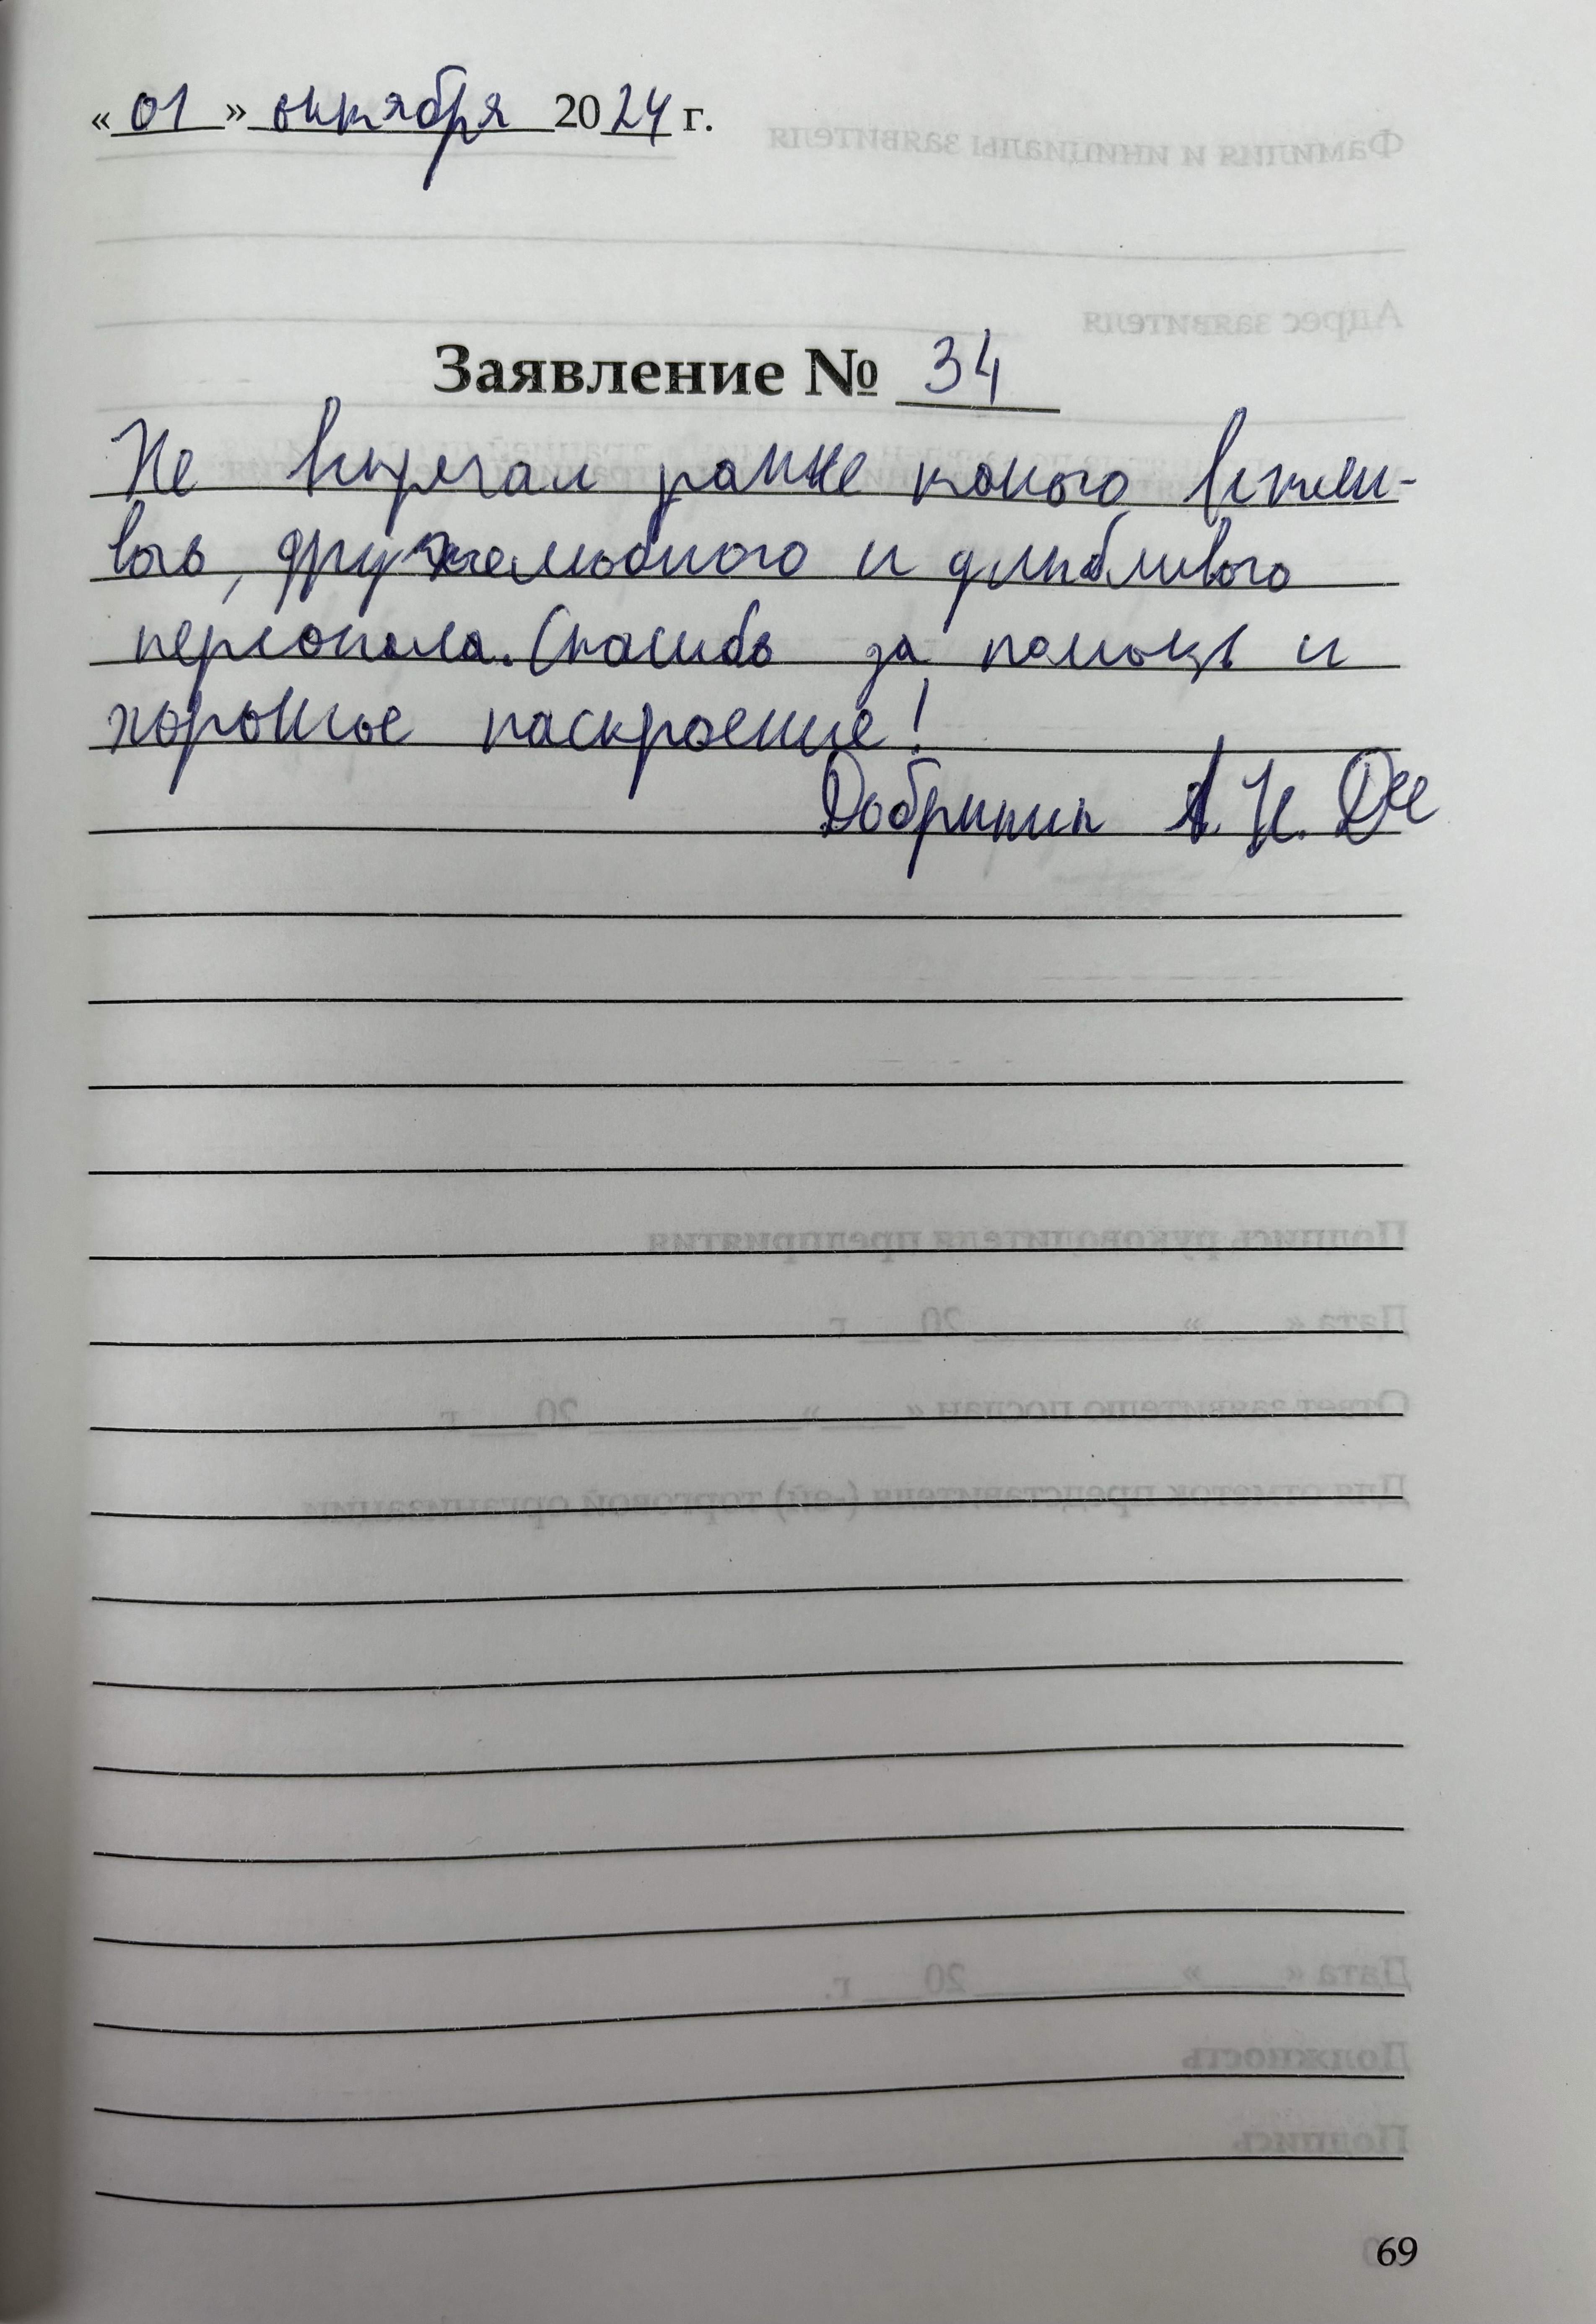 «01» октября 2024 г.
Заявление № 34
Не встречал ранее такого вежли-
вого, дружелюбного и
персонала. Спасибо за помощь и
хорошее настроение!
Добрынин А. Н.
69